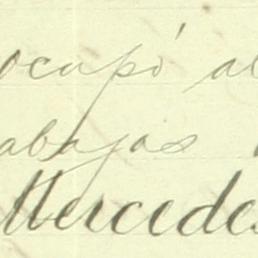 ocupó al
abajas
Mercedes